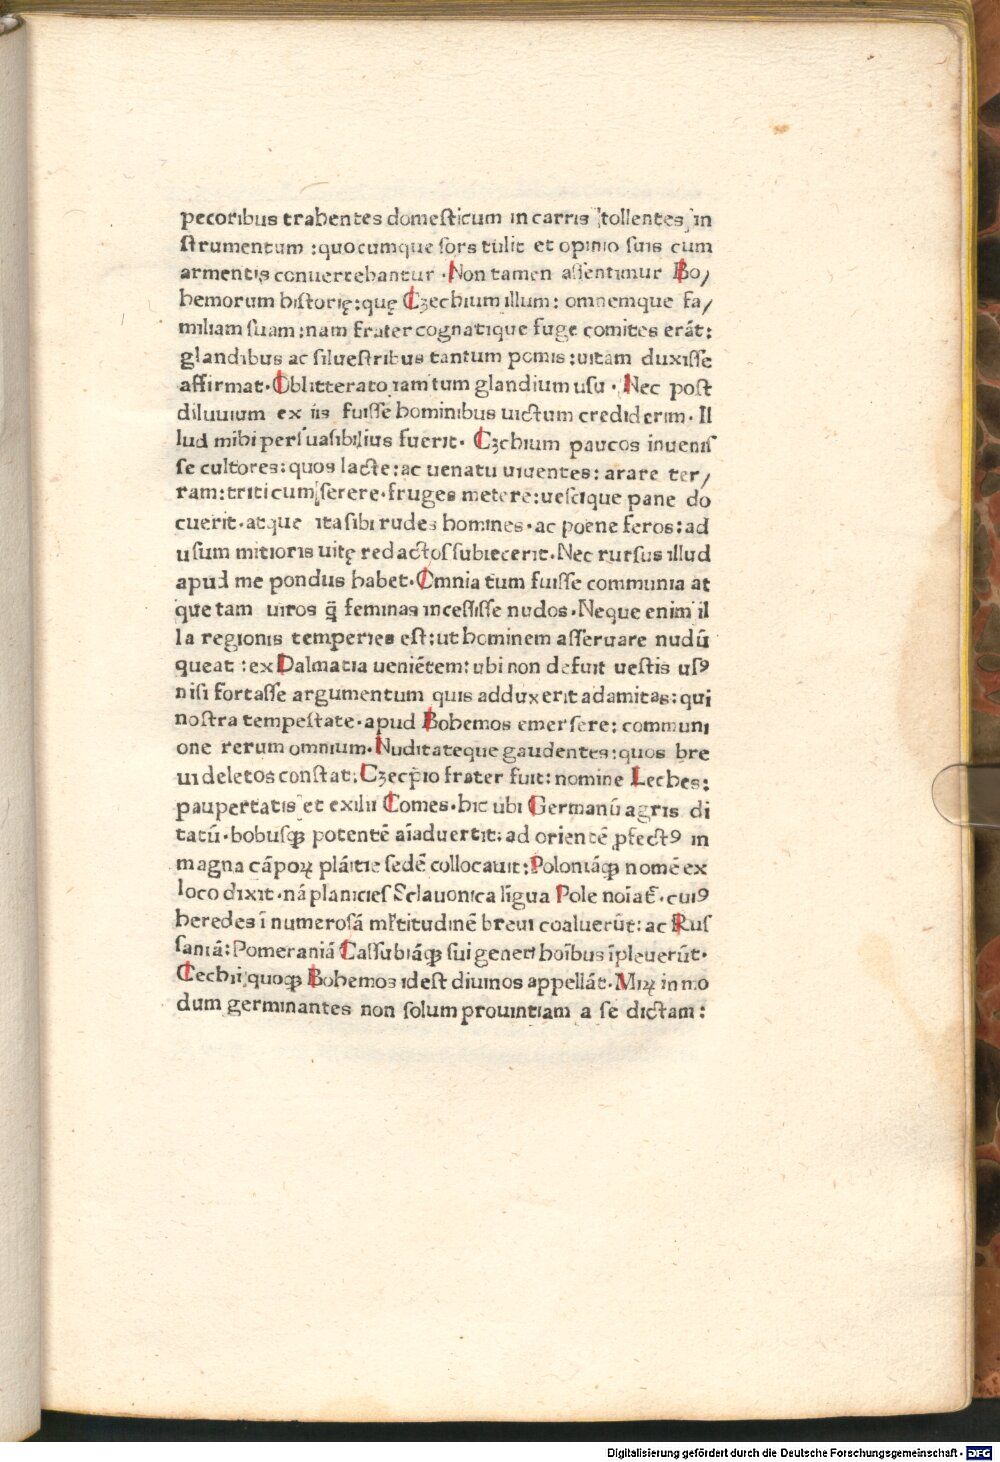 pecoribus trahentes domesticum in carris tollentes in
strumentum : quocumque sors tulit et opinio suis cum
armentis conuertebantur · Non tamen assentimur Bo/
hemorum historię: quę Czechium illum: omnemque fa/
miliam suam: nam frater cognatique fuge comites erát:
glandibus ac siluestribus tantum pomis: uitam duxisse
affirmat· Oblitterato iam tum glandium usu · Nec post
diluuium ex iis fuisse hominibus uictum crediderim· Il
lud mihi persuasibilius fuerit· Czchium paucos inuenis
se cultores: quos lacte: ac uenatu uiuentes: arare ter/
ram: triticum serere· fruges metere: uescique pane do
cuerit· atque ita sibi rudes homines· ac poene feros: ad
usum mitioris uitę redactos subiecerit· Nec rursus illud
apud me pondus habet· Omnia tum fuisse communia at
que tam uiros q̃ feminas incessisse nudos· Neque enim il
la regionis temperies est: ut hominem asseruare nudū
queat : ex Dalmatia ueniétem: ubi non defuit uestis usꝰ
nisi fortasse argumentum quis adduxerit adamitas: qui
nostra tempestate· apud Bohemos emersere: communi
one rerum omnium· Nuditateque gaudentes: quos bre
ui deletos constat: Czecpio frater fuit: nomine Leches:
paupertatis et exilii Comes· hic ubi Germanū agris di
tatū· bobusqꝫ potentē aīaduertit: ad orientē ꝓfectꝰ in
magna cāpoꝝ pláitie sedē collocauit: Poloniáqꝫ nomē ex
loco dixit· ná planicies Sclauonica līgua Pole noīat̄· cuiꝰ
heredes ī numerosá ml̄titudinē breui coaluerūt: ac Rus
saniá: Pomeraniá Cassubiáqꝫ sui generi hoībus īpleuerūt·
Cechii quoqꝫ Bohemos id est diuinos appellát· Miꝝ in mo
dum germinantes non solum prouintiam a se dictam:
Digitalisierung gefördert durch die Deutsche Forschungsgemeinschaft - DFG